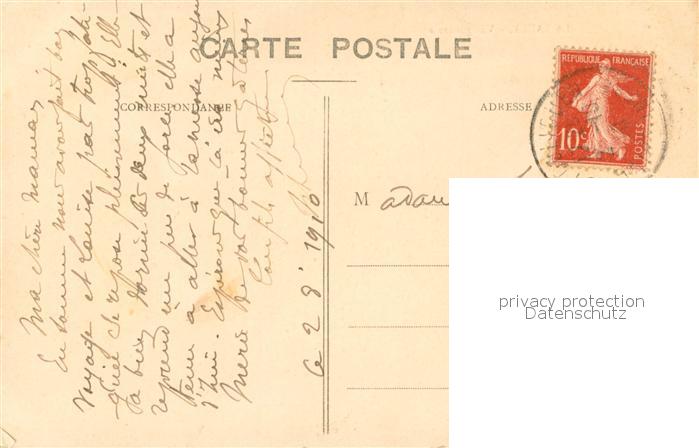 CARTE POSTALE
CORRESPONDANCE
ADRESSE
RÉPUBLIQUE FRANÇAISE
10c
POSTES
Ma chère maman,
En somme nous avons fait bon
voyage et Louise pas trop fati-
guée se repose pleinement. Elle
a bien dormi les deux nuits et
reprend un peu de force elle a
tenu à aller à la messe aujour
d'hui. Espérons que ça ira mieux
Merci de vos bonnes
affect
Ce 28 1910
Madam
privacy protection
Datenschutz